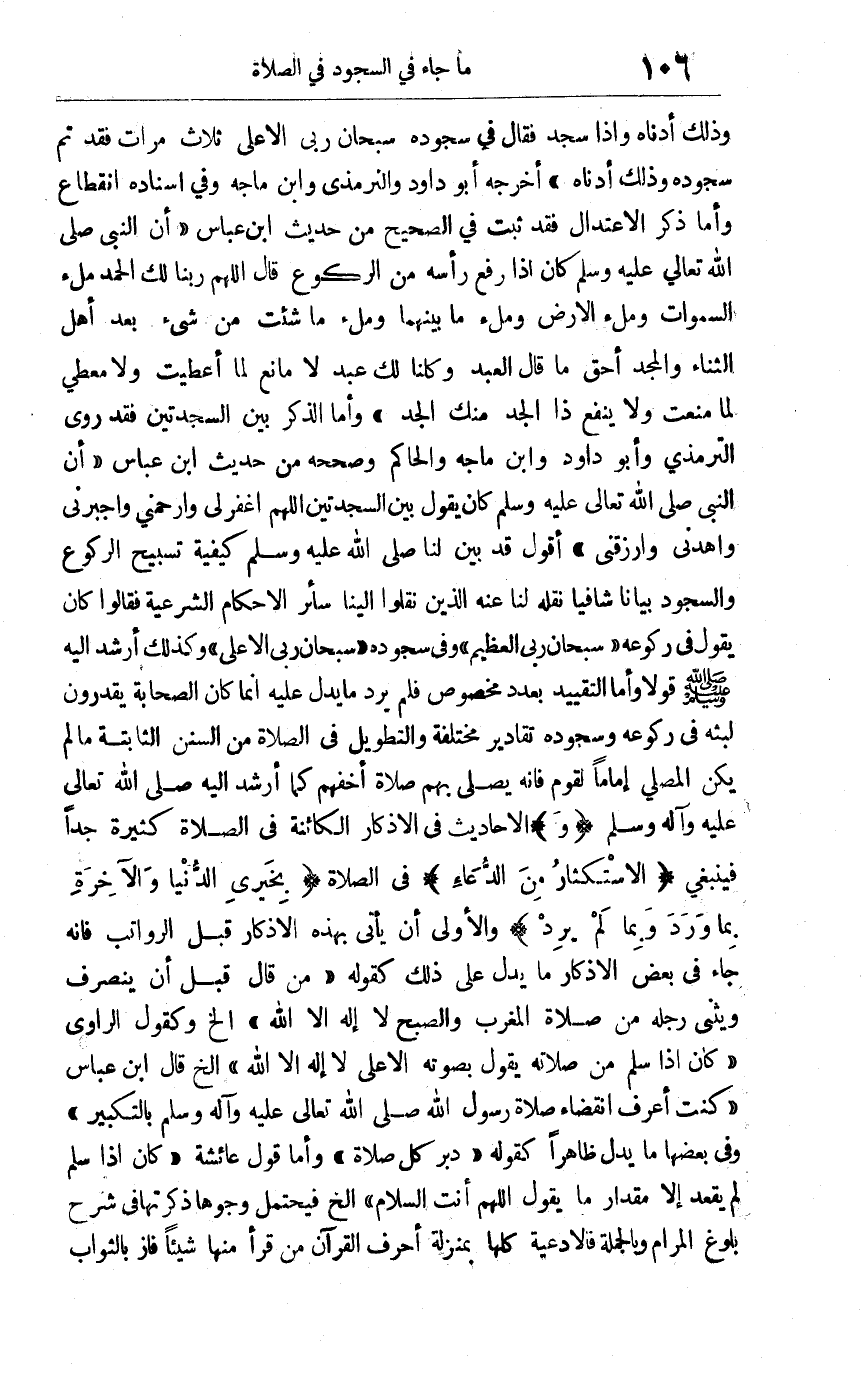 ١٠٦
ما جاء في السجود في الصلاة
وذلك أدناه واذا سجد فقال في سجوده سبحان ربى الاعلى ثلاث مرات فقد تم
سجوده وذلك أدناه » أخرجه أبو داود والترمذى وابن ماجه وفي اسناده انقطاع
وأما ذكر الاعتدال فقد ثبت في الصحيح من حديث ابن عباس « أن النبى صلى
الله تعالي عليه وسلم كان اذا رفع رأسه من الركوع قال اللهم ربنا لك الحمد ملء
السموات وملء الارض وملء ما بينهما وملء ما شئت من شىء بعد أهل
الثناء والمجد أحق ما قال العبد وكلنا لك عبد لا مانع لما أعطيت ولا معطي
لما منعت ولا ينفع ذا الجد منك الجد » وأما الذكر بين السجدتين فقد روى
الترمذي وأبو داود وابن ماجه والحاكم وصححه من حديث ابن عباس « أن
النبى صلى الله تعالى عليه وسلم كان يقول بين السجدتين اللهم اغفر لى وارحمني واجبرنى
واهدنى وارزقنى » أقول قد بين لنا صلى الله عليه وسلم كيفية تسبيح الركوع
والسجود بيانا شافيا نقله لنا عنه الذين نقلوا الينا سائر الاحكام الشرعية فقالوا كان
يقول فى ركوعه « سبحان ربى العظيم » وفى سجوده « سبحان ربى الاعلى » وكذلك أرشد اليه
ﷺ قولا وأما التقييد بعدد مخصوص فلم يرد مايدل عليه انما كان الصحابة يقدرون
لبثه فى ركوعه وسجوده تقادير مختلفة والتطويل فى الصلاة من السنن الثابتة مالم
يكن المصلي إماماً لقوم فانه يصلى بهم صلاة أخفهم كما أرشد اليه صلى الله تعالى
عليه وآله وسلم ﴿ وَ ﴾ الاحاديث فى الاذكار الكائنة فى الصلاة كثيرة جداً
فينبغي ﴿ الاسْتِكثارُ مِنَ الدُّعاءِ ﴾ فى الصلاة ﴿ بِخَيرىِ الدُّنْيا وَالآخِرَةِ
بِما وَرَدَ وَبِما لَمْ يرِدْ ﴾ والأولى أن يأتى بهذه الاذكار قبل الرواتب فانه
جاء فى بعض الاذكار ما يدل على ذلك كقوله « من قال قبل أن ينصرف
ويثنى رجله من صلاة المغرب والصبح لا إله الا الله » الخ وكقول الراوى
« كان اذا سلم من صلاته يقول بصوته الاعلى لا إله الا الله » الخ قال ابن عباس
« كنت أعرف انقضاء صلاة رسول الله صلى الله تعالى عليه وآله وسلم بالتكبير »
وفى بعضها ما يدل ظاهراً كقوله « دبر كل صلاة » وأما قول عائشة « كان اذا سلم
لم يقعد إلا مقدار ما يقول اللهم أنت السلام » الخ فيحتمل وجوها ذكرتها فى شرح
بلوغ المرام وبالجملة فالادعية كلها بمنزلة أحرف القرآن من قرأ منها شيئاً فاز بالثواب